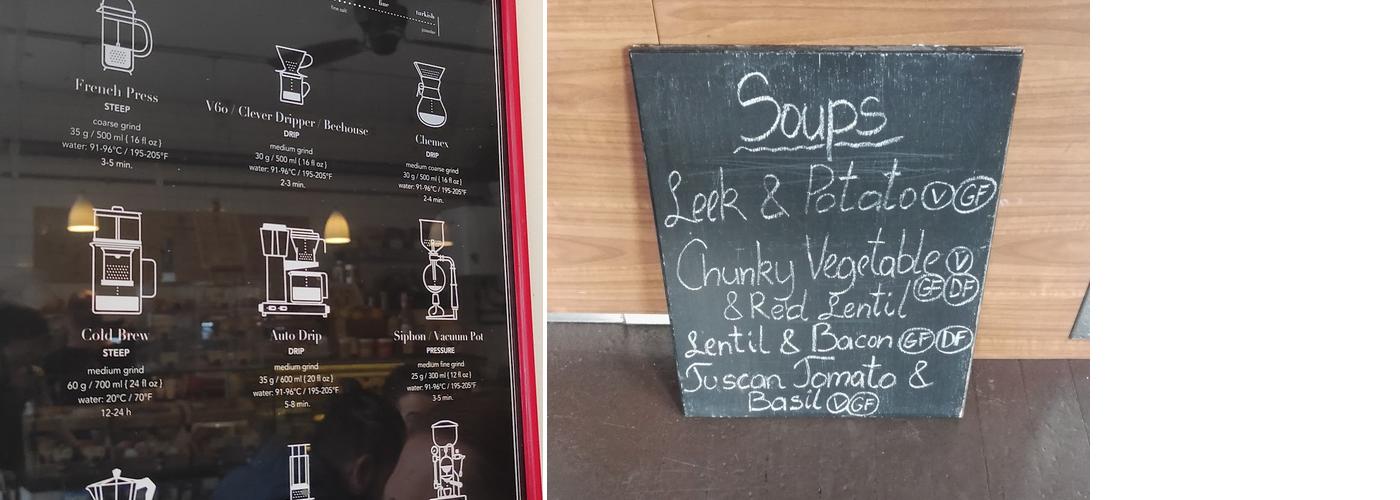 fine
turkish
fine salt
powder
French Press
STEEP
coarse grind
35 g / 500 ml ( 16 fl oz )
water: 91-96°C / 195-205°F
3-5 min.
V60 / Clever Dripper / Beehouse
DRIP
medium grind
30 g / 500 ml ( 16 fl oz )
water: 91-96°C / 195-205°F
2-3 min.
Chemex
DRIP
medium coarse grind
30 g / 500 ml ( 16 fl oz )
water: 91-96°C / 195-205°F
2-4 min.
Cold Brew
STEEP
medium grind
60 g / 700 ml ( 24 fl oz )
water: 20°C / 70°F
12-24 h
Auto Drip
DRIP
medium grind
35 g / 600 ml ( 20 fl oz )
water: 91-96°C / 195-205°F
5-8 min.
Siphon / Vacuum Pot
PRESSURE
medium fine grind
25 g / 300 ml ( 12 fl oz )
water: 91-96°C / 195-205°F
3-5 min.
Soups
Leek & Potato V GF
Chunky Vegetable V
& Red Lentil GF DF
Lentil & Bacon GF DF
Tuscan Tomato &
Basil V GF